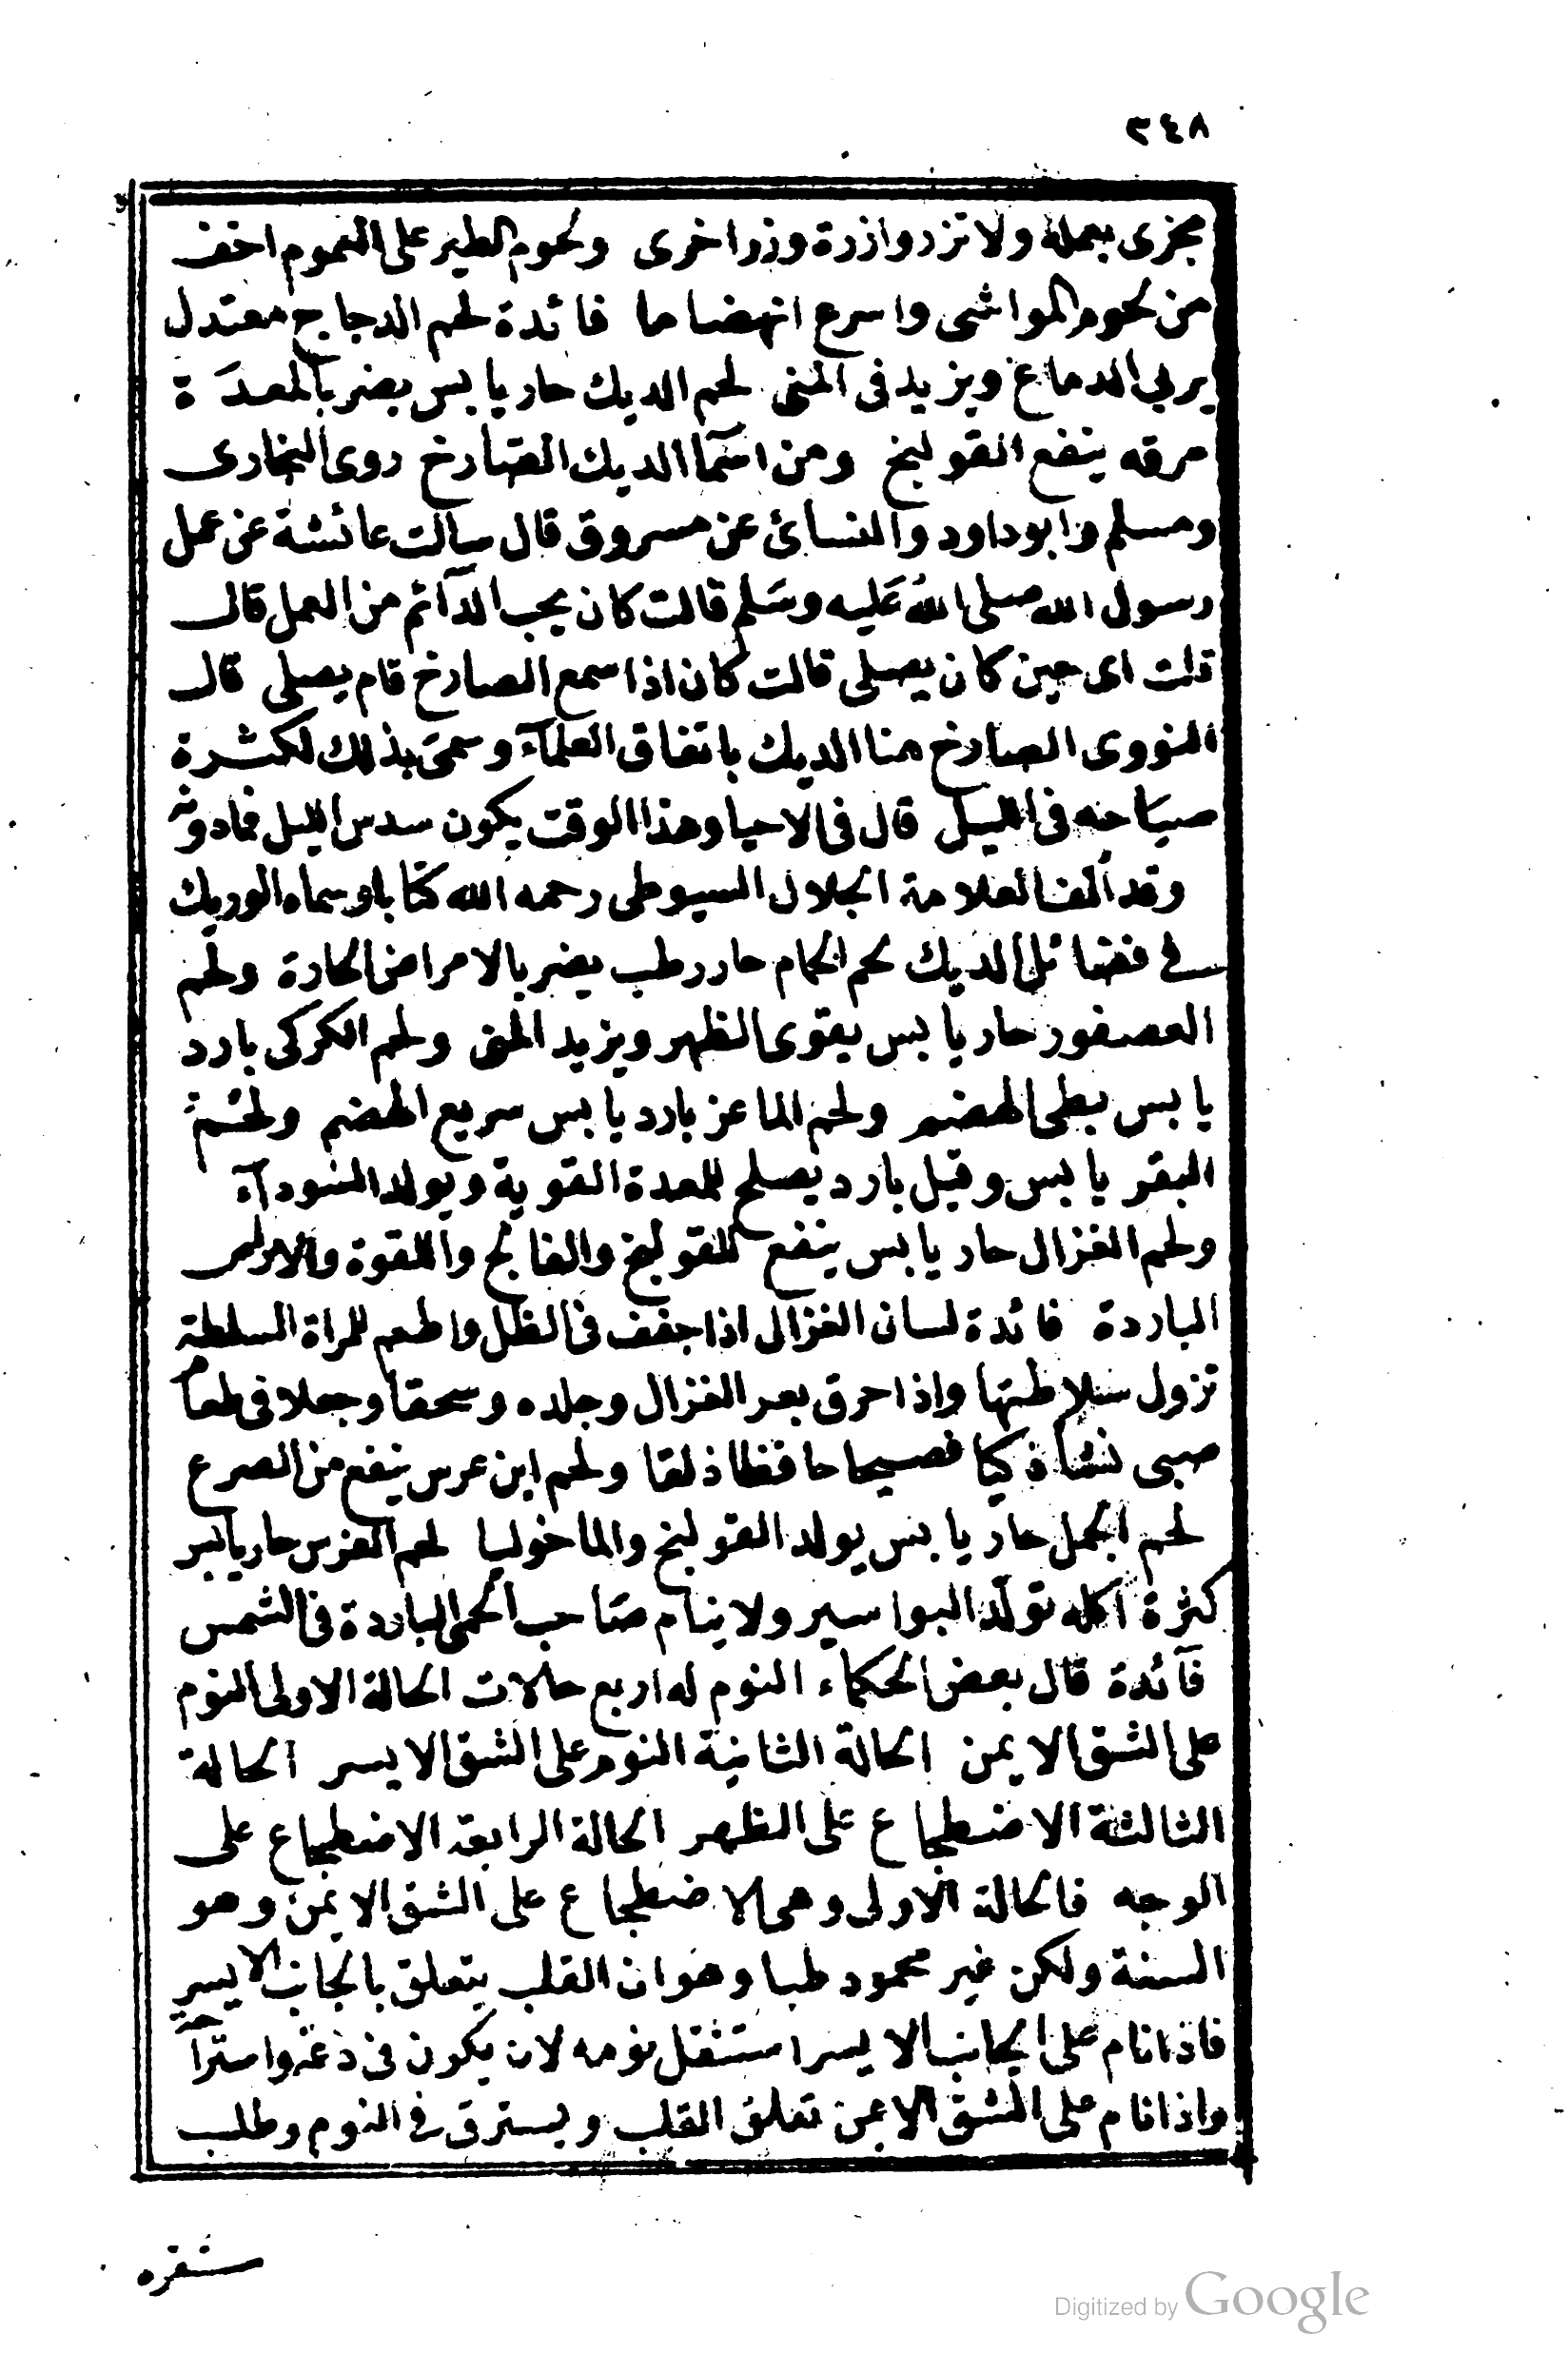 ٣٤٨
مجزى بعمله ولا تزر وازرة وزر اخرى ولحوم الطير على العموم اخف
من لحوم المواشى واسرع انهضاما فائدة لحم الدجاج معتدل
يربي الدماغ ويزيد فى المنى لحم الديك حار يابس يضر بالمعدة
مرقه ينفع القولنج ومن اسمآ الديك الصارخ روى البخارى
ومسلم وابو داود والنسائ عن مسروق قال سالت عائشة عن عمل
رسول الله صلى الله عليه وسلم قالت كان يحب الدآئم من العمل قال
قلت اى حين كان يصلى قالت كان اذا سمع الصارخ قام يصلى قال
النووى الصارخ هنا الديك باتفاق العلمآء وسمى بذلك لكثرة
صياحه فى الليل قال فى الاحيا وهذا الوقت يكون سدس الليل فمادونه
وقد ألف العلامة الجلال السيوطى رحمه الله كتابا وسماه الوديك
فى فضائل الديك لحم الحمام حار رطب يضر بالامراض الحارة ولحم
العصفور حار يابس يقوى الظهر ويزيد المنى ولحم الكركى بارد
يابس بطى الهضم ولحم الماعز بارد يابس سريع الهضم ولحم
البقر يابس وقيل بارد يصلح للمعدة القوية ويولد السودآء
ولحم الغزال حار يابس ينفع للقولنج والفالج واللقوة والامراض
الباردة فائدة لسان الغزال اذا جفف فى الظل واطعم للمراة السلطة
تزول سلاطتها واذا حرق بعر الغزال وجلده وسحقا وجعلا فى طعام
صبى نشاذكيا فصيحا حافظا ذلقا ولحم ابن عرس ينفع من الصرع
لحم الجمل حار يابس يولد القولنج والماخوليا لحم الفرس حار يابس
كثرة اكله تولد البواسير ولا ينام صاحب الحمى الباردة فى الشمس
فآئدة قال بعض الحكماء النوم له اربع حالات الحالة الاولى النوم
على الشق الايمن الحالة الثانية النوم على الشق الايسر الحالة
الثالثة الاضطجاع على الظهر الحالة الرابعة الاضطجاع على
الوجه فالحالة الاولى وهى الاضطجاع على الشق الايمن وهو
السنة ولكن غير محمود طبا وهو ان القلب يتعلق بالجانب الايسر
فاذا نام على الجانب الايسر استثقل نومه لان يكون فى دعة واستراحة
واذا نام على الشق الايمن تعلق القلب ويسترق فى النوم وطلب
Digitized by Google